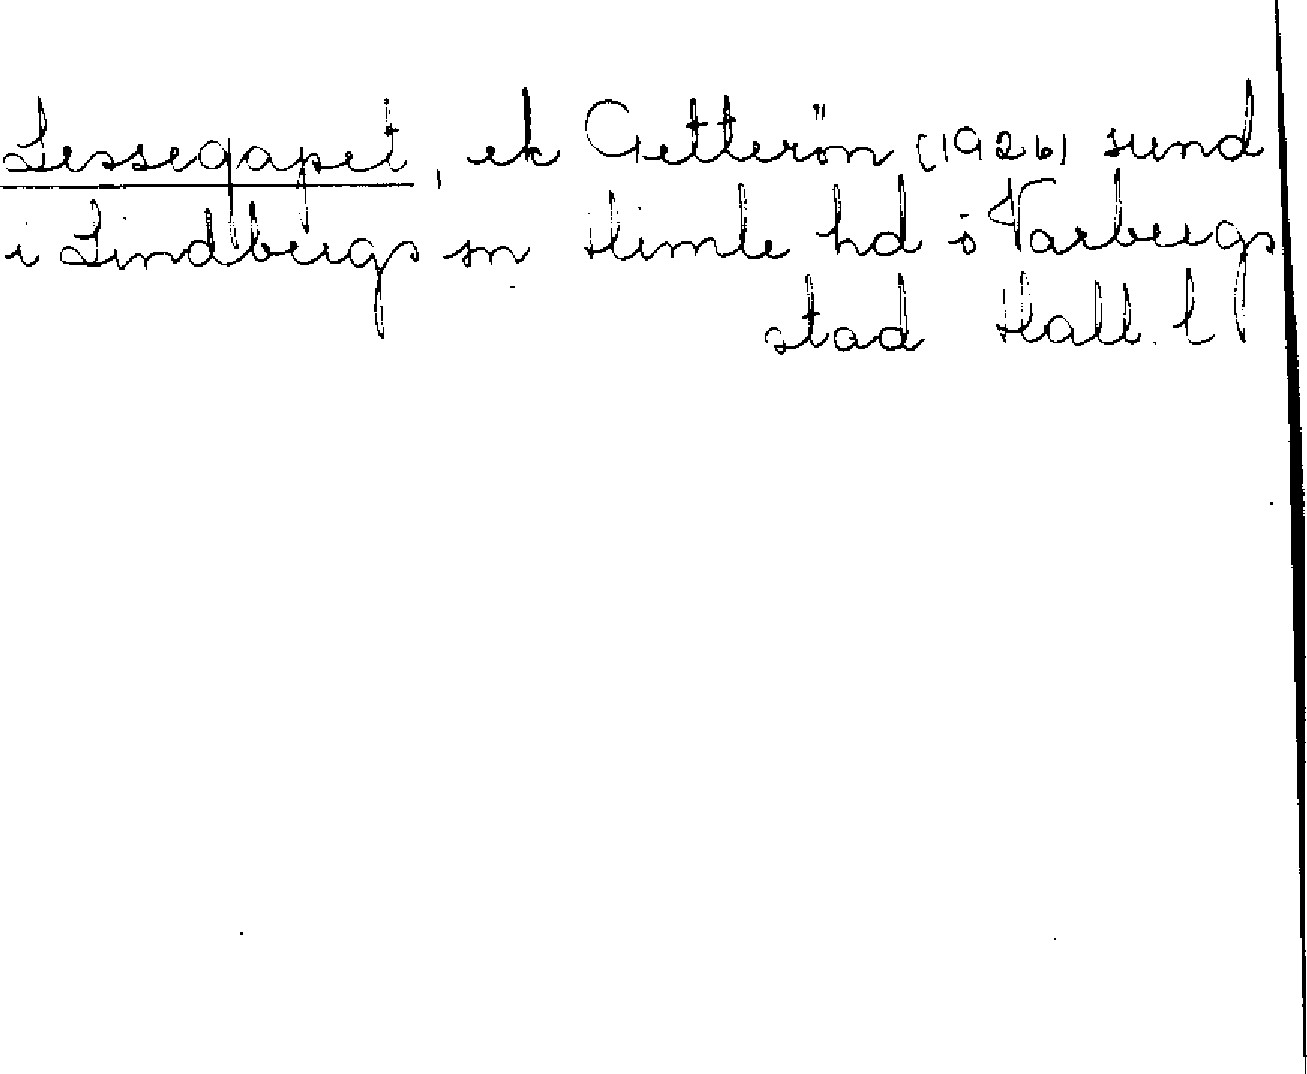 Lessegapet, ek Getterön (1926) sund
i Lindbergs sn Himle hd o Varbergs
stad Hall. l